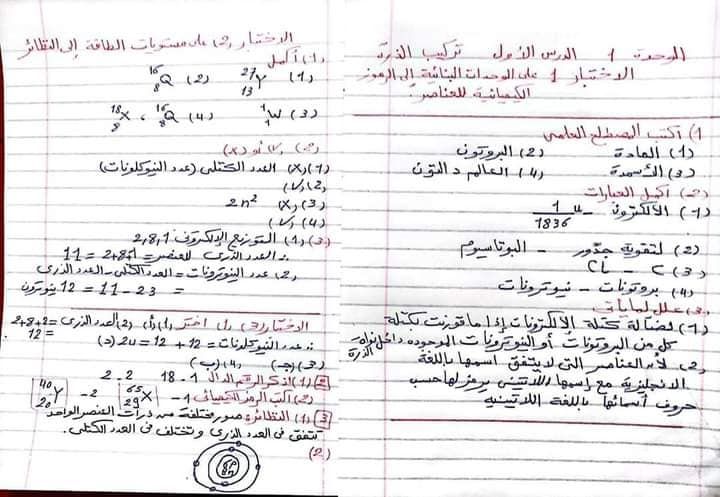 الوحدة 1 الدرس الأول تركيب الذرة
الاختبار 1 على الوحدات البنائية إلى الرموز
الكيميائية للعناصر
1) أكتب المصطلح العلمى
(1) المادة (2) البروتون
(3) الأسمدة (4) العالم دالتون
(2) أكمل العبارات
(1) الألكترون - 1/1836 u
(2) لتقوية جذور - البوتاسيوم
(3) C - CL
(4) بروتونات - نيوترونات
(3) علل لما يأتى
(1) لضآلة كتلة الألكترونات إذا ما قورنت بكتلة
كل من البروتونات أو النيوترونات الموجوده داخل نواه الذرة
(2) لأن العناصر التى لا يتفق اسمها باللغة
الانجليزية مع إسمها اللاتينى يرمز لها حسب
حروف أسمائها باللغة اللاتينيه
الاختبار (2) على مستويات الطاقة إلى النظائر
(1) أكمل
(1) ²⁷₁₃Y (2) ¹⁶₈Q
(3) ¹₁W (4) ¹⁶₈Q ، ¹⁸₈X
(2) √ أو (x)
(1) (x) العدد الكتلى (عدد النيوكلونات)
(2) (√)
(3) (x) 2n²
(4) (√)
(3) (1) التوزيع الإلكترونى 2,8,1
∴ العدد الذرى للعنصر = 2+8+1 = 11
(2) عدد النيوترونات = العدد الكتلى - العدد الذرى
= 23 - 11 = 12 نيوترون
الاختبار (3) (1) اختر (1) (أ) (2) العدد الذرى = 2+8+2
= 12
∴ عدد النيوكلونات = 12 + 12 = 24 (د)
(3) (جـ) (4) (ب)
[2] (1) اذكر الرقم الدال 1- 18 2- 2
(2) اكتب الرمز الكيميائى 1- ⁶⁵₂₉X 2- ⁴⁰₂₀Y
[3] (1) النظائر: صور مختلفة من ذرات العنصر الواحد
تتفق فى العدد الذرى وتختلف فى العدد الكتلى.
(2)
8P
8n